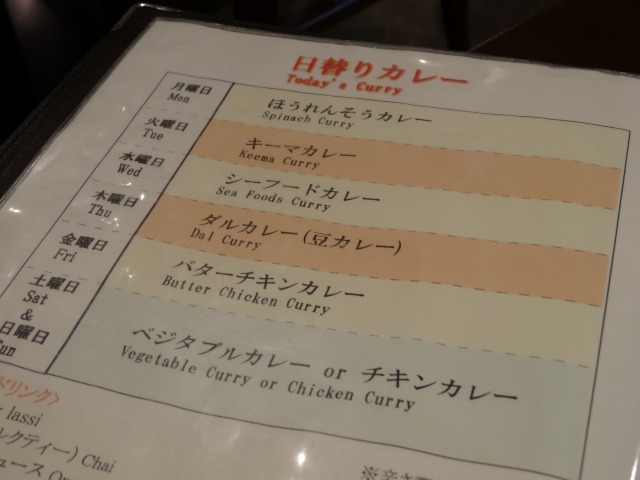 日替りカレー
Today's Curry
月曜日
Mon
ほうれんそうカレー
Spinach Curry
火曜日
Tue
キーマカレー
Keema Curry
水曜日
Wed
シーフードカレー
Sea Foods Curry
木曜日
Thu
ダルカレー(豆カレー)
Dal Curry
金曜日
Fri
バターチキンカレー
Butter Chicken Curry
土曜日
Sat
&
日曜日
Sun
ベジタブルカレー or チキンカレー
Vegetable Curry or Chicken Curry
ドリンク〉
lassi
ルクティー) Chai
ュース
※辛さ